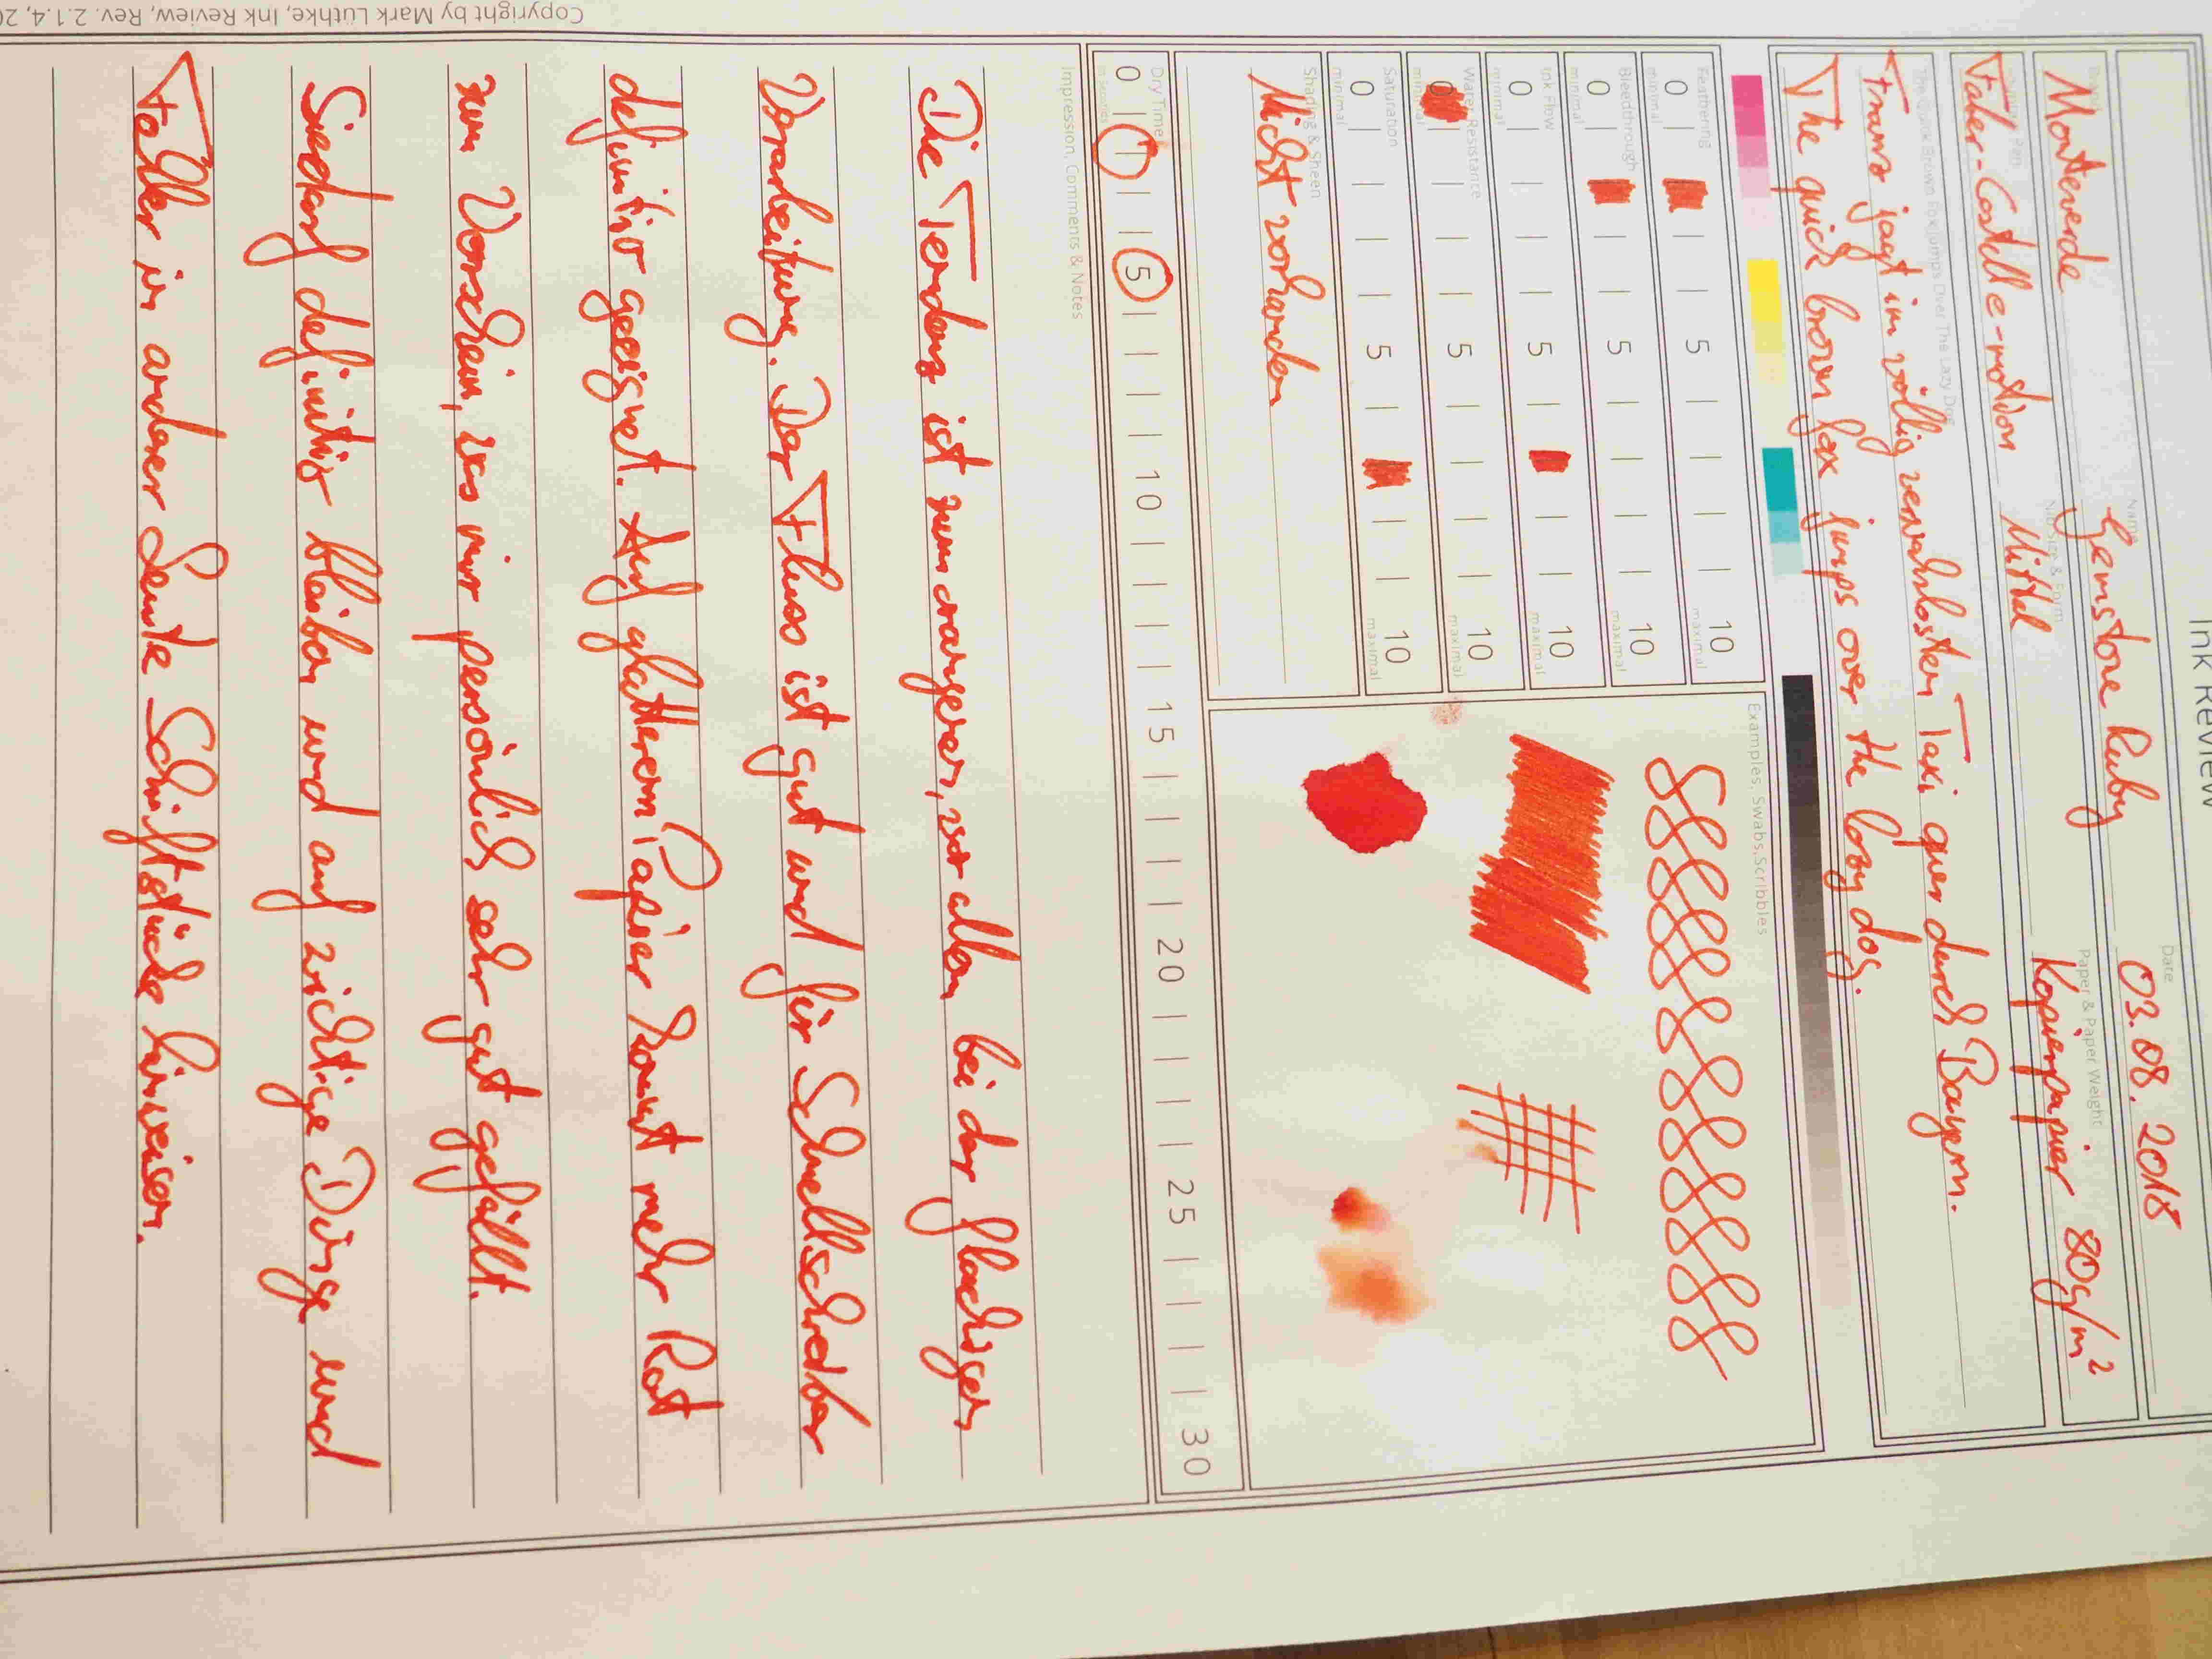 Ink Review
Brand
Monteverde
Name
Gemstone Ruby
Date
03.08.2018
Faber-Castell e-motion
Nib Size & Form
Mittel
Paper & Paper Weight
Kopierpapier 80g/m²
The Quick Brown Fox Jumps Over The Lazy Dog
Franz jagt im völlig verwahrlosten Taxi quer durch Bayern.
The quick brown fox jumps over the lazy dog.
Feathering
0 5 10
minimal maximal
Bleedthrough
0 5 10
minimal maximal
Ink Flow
0 5 10
minimal maximal
Water Resistance
0 5 10
minimal maximal
Saturation
0 5 10
minimal maximal
Shading & Sheen
Nicht vorhanden
Examples, Swabs, Scribbles
Dry Time
0 5 10 15 20 25 30
in Seconds
Impression, Comments & Notes
Die Tendenz ist zum orangenen, vor allem bei der flächigen
Verarbeitung. Der Fluss ist gut und für Schnellschreiber
definitiv geeignet. Auf glatterem Papier kommt mehr Rot
zum Vorschein, was mir persönlich sehr gut gefällt.
definitiv bleiben und auf wichtige Dinge und
Fehler in anderer Leute Schriftstücke hinweisen.
Copyright by Mark Lüthke, Ink Review, Rev. 2.1.4, 20